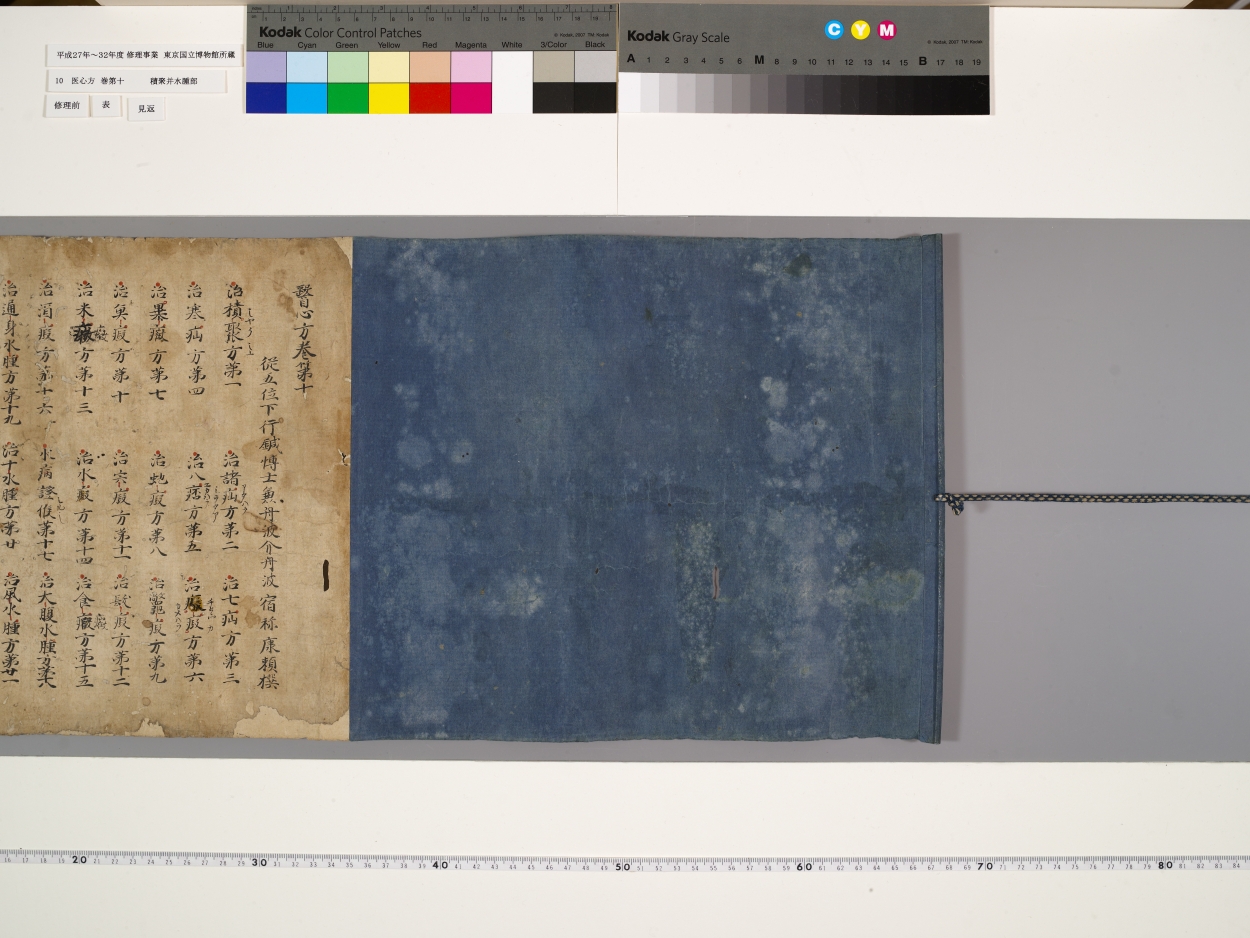 平成27年～32年度 修理事業 東京国立博物館所蔵
10 医心方 巻第十 積聚并水腫部
修理前
表
見返
Kodak Color Control Patches
© Kodak, 2007 TM: Kodak
Blue Cyan Green Yellow Red Magenta White 3/Color Black
Kodak Gray Scale
C Y M
© Kodak, 2007 TM: Kodak
A 1 2 3 4 5 6 M 8 9 10 11 12 13 14 15 B 17 18 19
醫心方巻第十
從五位下行鍼博士兼丹波介丹波宿祢康頼撰
治積聚方第一 治諸疝方第二 治七疝方第三
治寒疝方第四 治八痞方第五 治癥瘕方第六
治暴癥方第七 治虵瘕方第八 治鼈瘕方第九
治魚瘕方第十 治宍瘕方第十一 治髪瘕方第十二
治米癥方第十三 治水瘕方第十四 治食癥方第十五
治酒瘕方第十六 水病證候第十七 治大腹水腫方第十八
治通身水腫方第十九 治十水腫方第廿 治風水腫方第廿一
20 30 40 50 60 70 80